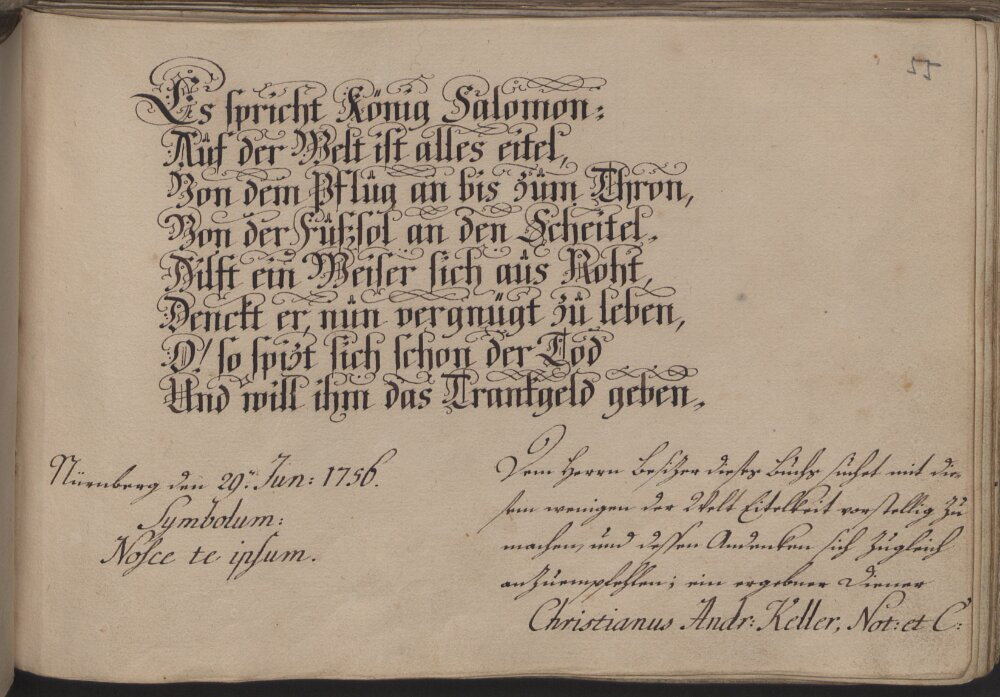 Es spricht König Salomon:
Auf der Welt ist alles eitel,
Von dem Pflug an bis zum Thron,
Von der Fußsol an den Scheitel.
Hilft ein Weiser sich aus Noht,
Denckt er, nun vergnügt zu leben,
O! so spizt sich schon der Tod
Und will ihm das Trankgeld geben.
Nürnberg den 29. Jun: 1756.
Symbolum:
Nosce te ipsum.
Dem Herrn Besitzer dieses Buchs suchet mit die-
sem wenigen der Welt Eitelkeit vorstellig zu
machen, und dessen Andenken sich zugleich
anzuempfehlen; ein ergebner Diener
Christianus Andr: Keller, Not: et C: